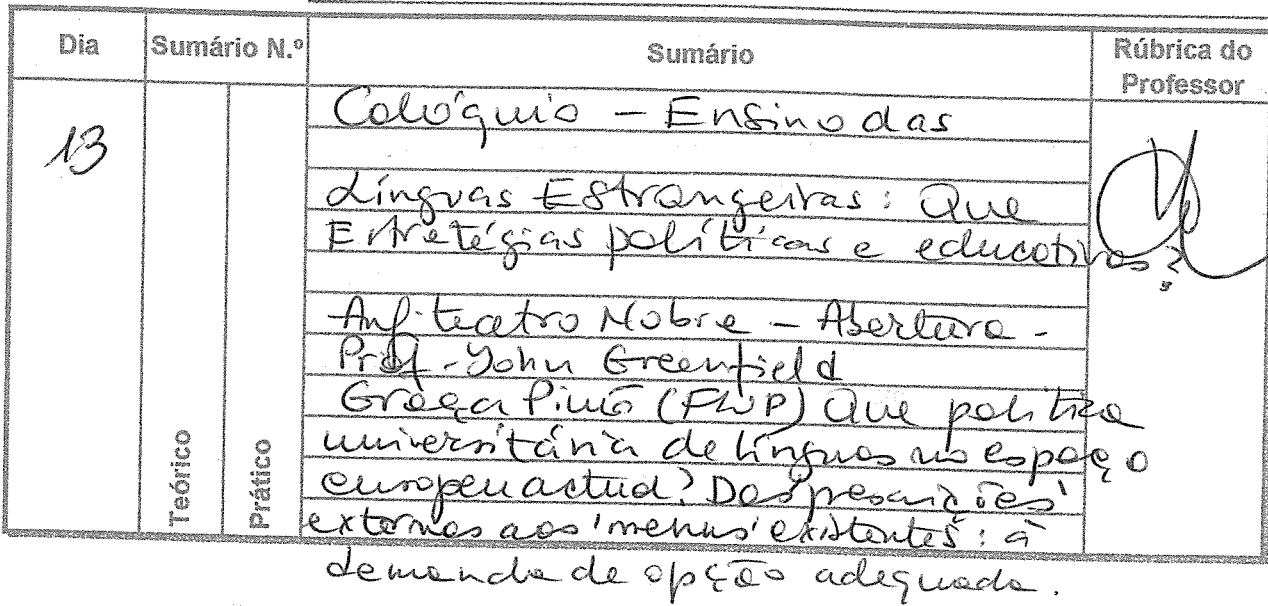 Dia
Sumário N.º
Sumário
Rúbrica do
Professor
13
Teórico
Prático
Colóquio - Ensino das
Línguas Estrangeiras: Que
Estratégias políticas e educativas?
Anfiteatro Nobre - Abertura -
Prof. John Greenfield
Graça Pinto (FLUP) Que política
universitária de línguas no espaço
europeu actual? Das 'prescrições'
externas aos 'menus' existentes: à
demanda de opção adequada.